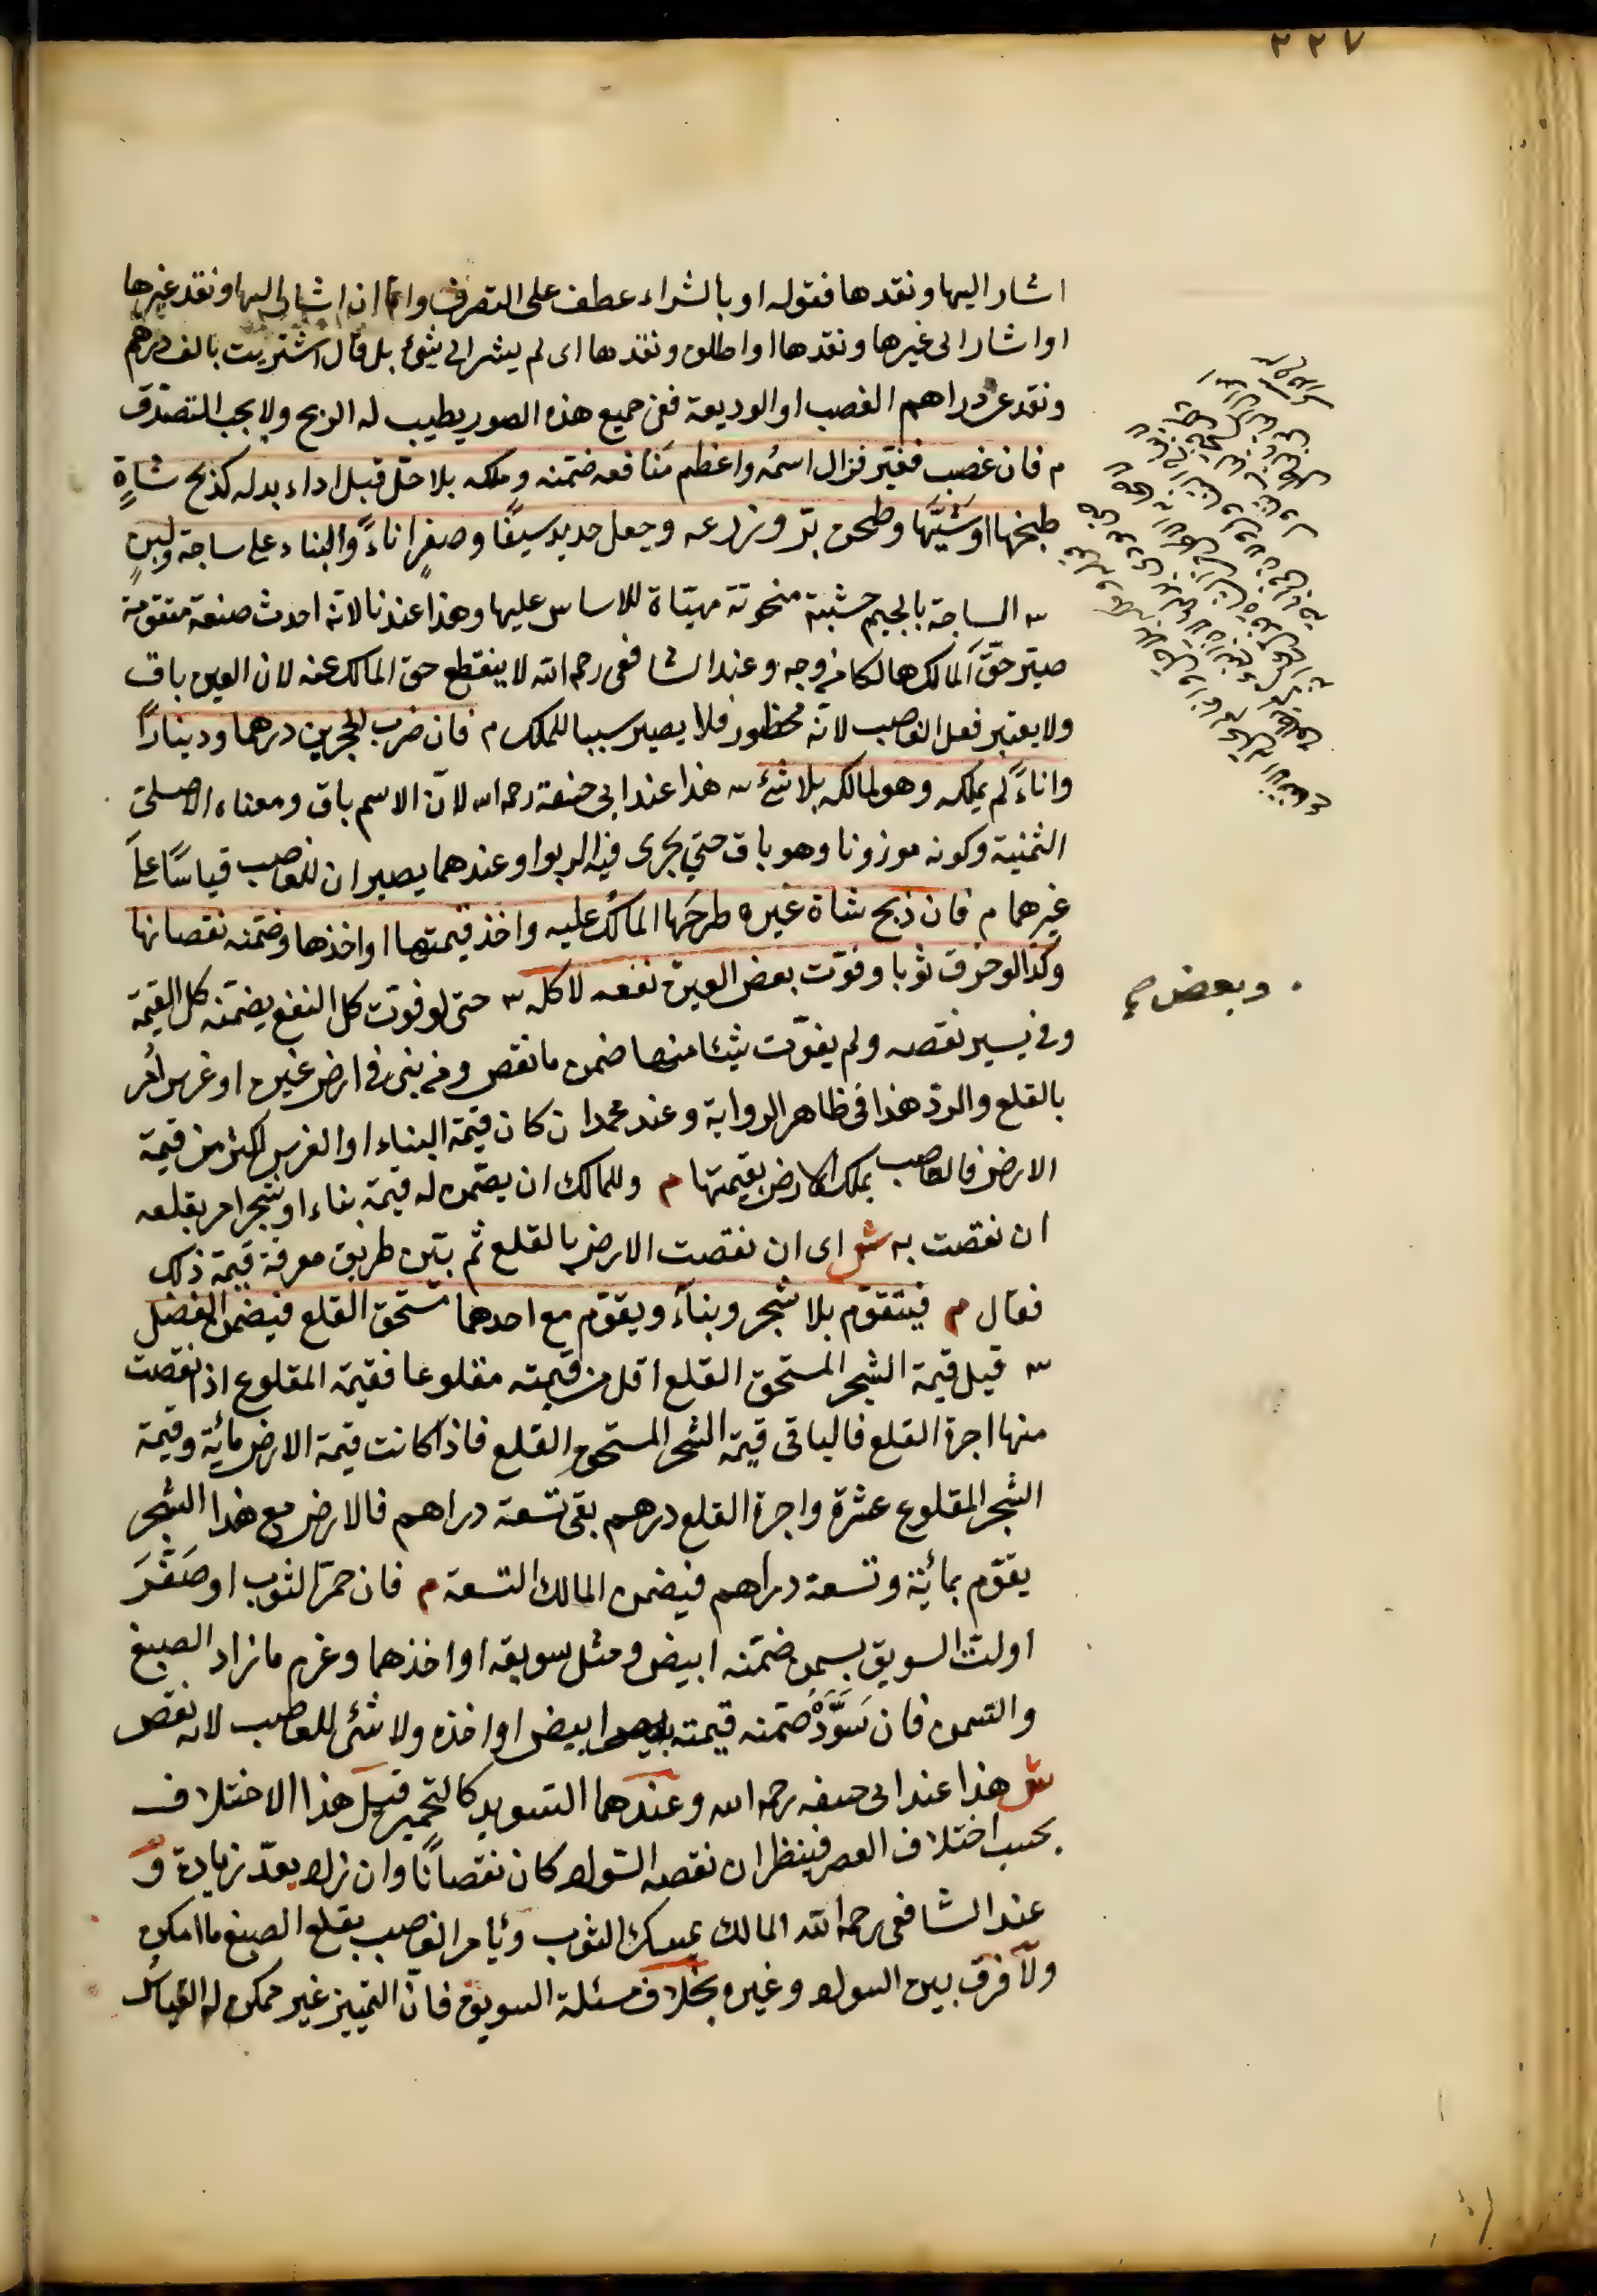 ٢٢٧
اشار اليها ونقدها فقوله او بالشراء عطف على التصرف واما ان اشار اليها ونقد غيرها
او اشار الى غيرها ونقدها او اطلق ونقدها اى لم يشر الى شئ بل قال اشتريت بالف درهم
ونقد من دراهم الغصب او الوديعة ففى جميع هذه الصور يطيب له الربح ولا يجب التصدق
م فان غصب فغيّر فزال اسمه واعظم منافعه ضمنه وملكه بلا حلّ قبل اداء بدله كذبح شاةٍ
طبخها او شيّها وطحن برّ وزرعه وجعل حديد سيفًا وصفرٍ اناءً والبناء على ساجة ولبنٍ
س الساجة بالجيم خشبة منحوتة مهيّاة للاساس عليها وهذا عندنا لانه احدث صنعة متقومة
صيّر حقّ المالك هالكا من وجه وعند الشافعى رحمه الله لا ينقطع حق المالك عنه لان العين باق
ولا يعتبر فعل الغاصب لانّه محظور فلا يصير سببا للملك م فان ضرب الحجرين درهما ودينارًا
واناءً لم يملكه وهو لمالكه بلا شئ س هذا عند ابى حنيفة رحمه الله لانّ الاسم باق ومعناه الاصلىّ
الثمنية وكونه موزونا وهو باق حتى يجرى فيه الربوا وعندهما يصيران للغاصب قياسًا على
غيرهما م فان ذبح شاة غيره طرحها المالك عليه واخذ قيمتها او اخذها وضمنه نقصانها
وكذا لو خرق ثوبا وفوّت بعض العين نفعه لا كله س حتى لو فوّت كل النفع يضمنه كل القيمة
وبعض
وفى يسير نقصه ولم يفوّت شيئا منها ضمن ما نقص ومن بنى فى ارض غيره او غرس اُمر
بالقلع والردّ هذا فى ظاهر الرواية وعند محمد ان كان قيمة البناء او الغرس اكثر من قيمة
الارض فالغاصب يملك الارض بقيمتها م وللمالك ان يضمن له قيمة بناء او شجر امر بقلعه
ان نقصت به ش اى ان نقصت الارض بالقلع ثم بيّن طريق معرفة قيمة ذلك
فقال م فيتقوّم بلا شجر وبناءً ويقوّم مع احدهما مستحق القلع فيضمن الفضل
س قيل قيمة الشجر المستحق القلع اقل من قيمته مقلوعا فقيمة المقلوع اذا نقصت
منها اجرة القلع فالباقى قيمة الشجر المستحق القلع فاذا كانت قيمة الارض مائة وقيمة
الشجر المقلوع عشرة واجرة القلع درهم بقى تسعة دراهم فالارض مع هذا الشجر
يقوّم بمائة وتسعة دراهم فيضمن المالك التسعة م فان حمّر الثوب او صفّرَ
او لتّ السويق بسمن ضمّنه ابيض ومثل سويقه او اخذهما وغرم ما زاد الصبغ
والسمن فان سَوَّدْ ضمّنه قيمته ابيض او اخذه ولا شئ للغاصب لانه نقص
ش هذا عند ابى حنيفه رحمه الله وعندهما التسويد كالتحمير قيل هذا الاختلاف
بحسب اختلاف العصر فينظر ان نقصه السّواد كان نقصانًا وان زاد يعدّ زيادة و
عند الشافعى رحمه الله المالك يمسك الثوب ويأمر الغاصب بقلع الصبغ ما امكن
ولا فرق بين السواد وغيره بخلاف مسئلة السويق فانّ التمييز غير ممكن له القياس